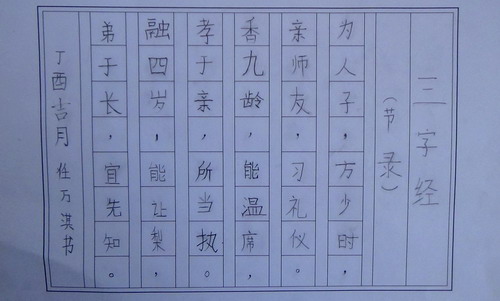 三字经
（节录）
为人子，方少时，
亲师友，习礼仪。
香九龄，能温席，
孝于亲，所当执。
融四岁，能让梨，
弟于长，宜先知。
丁酉吉月 任万淇书